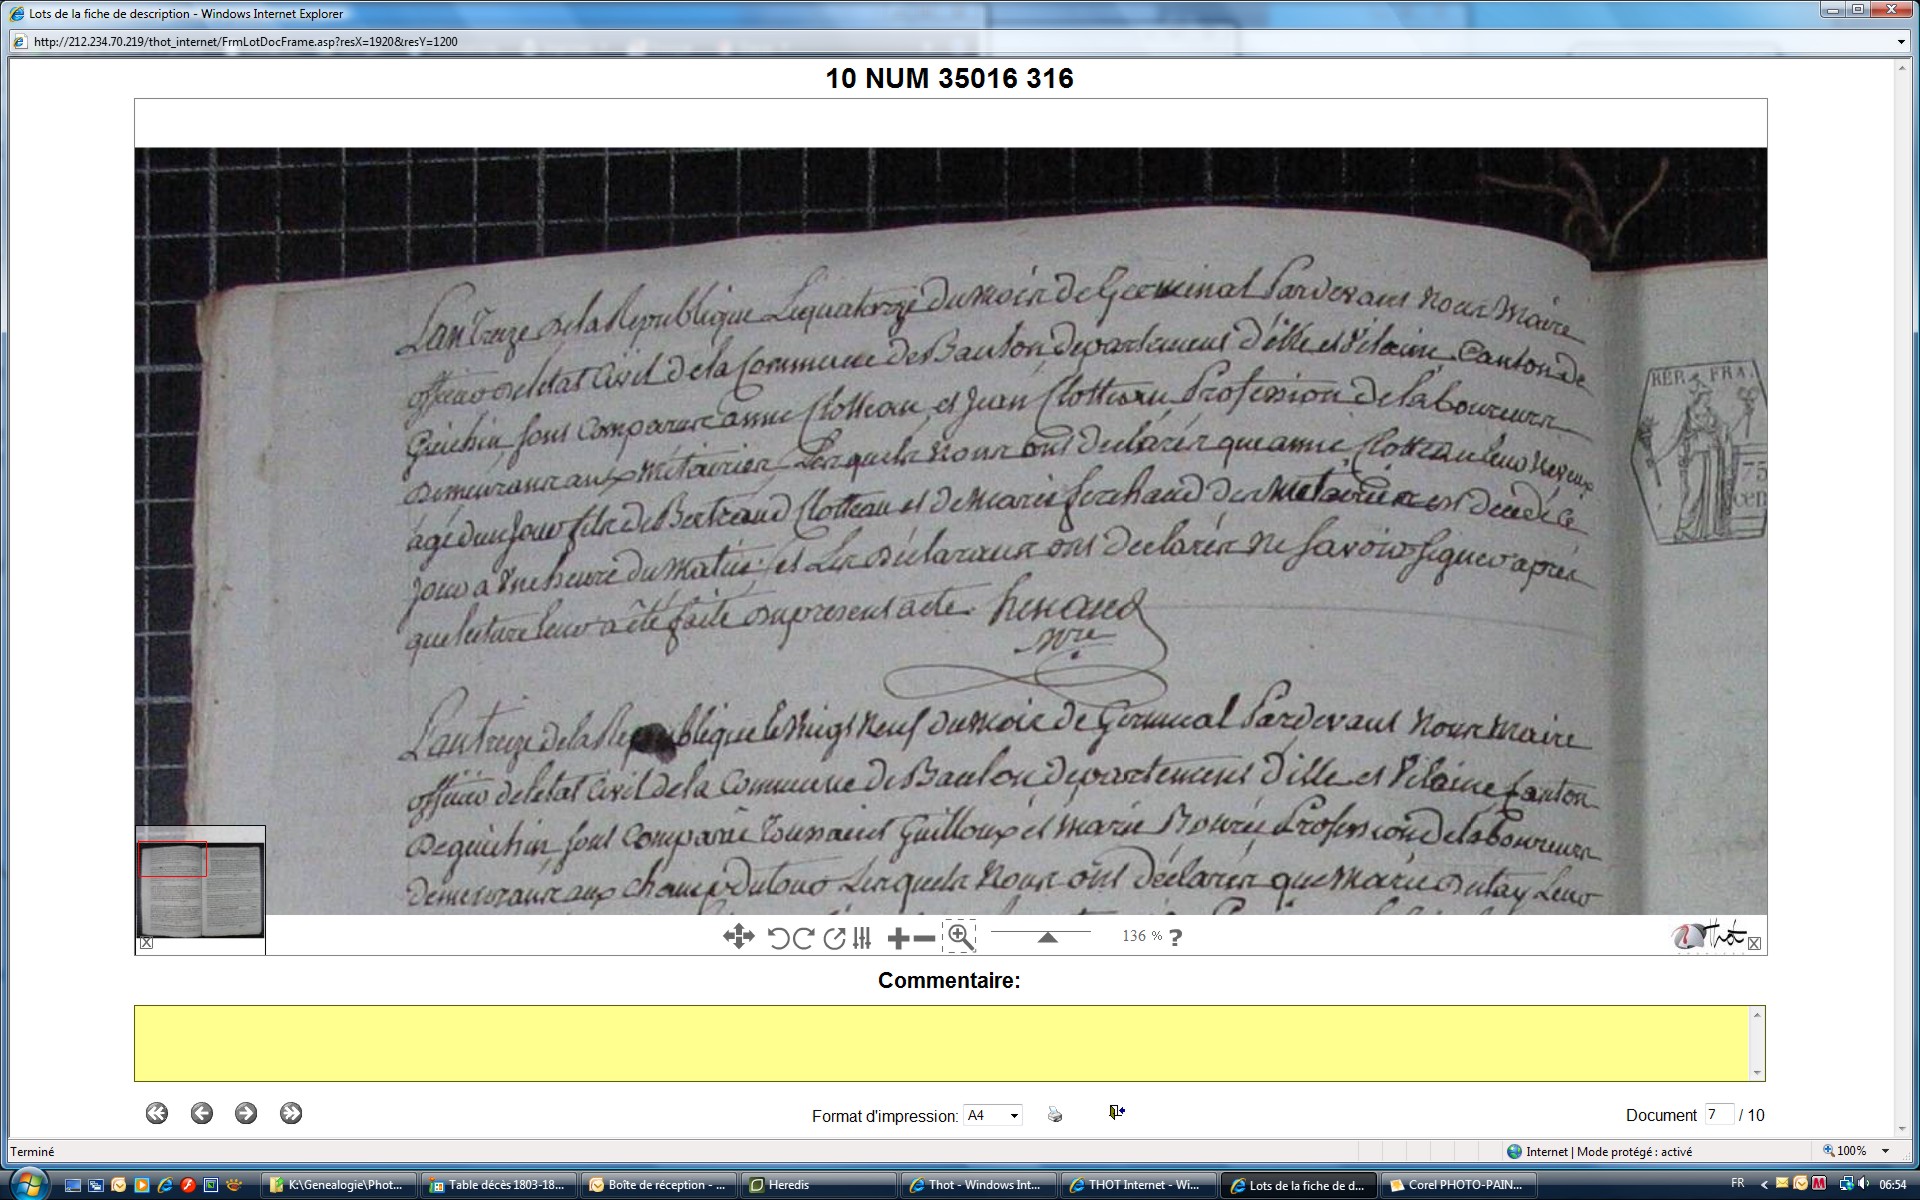 Lots de la fiche de description - Windows Internet Explorer
http://212.234.70.219/thot_internet/FrmLotDocFrame.asp?resX=1920&resY=1200
10 NUM 35016 316
Lan treze de la Republique Le quatorze du mois de Germinal Pardevant nous Maire
officier de letat Civil de la Commune de Baulon departement d'ille et Vilaine Canton de
Guichin sont Comparus anne Clotteau et Jean Clotteau Profession de laboureurs
demeurant aux Metairies Lesquels nous ont declarés que anne Clotteau leur neveux
agé dun jour fils de Bertrand Clotteau et de marie ferchaud des Metairies est decedé ce
jour a une heure du matin et Les déclarants ont declarés ne savoir signer après
que lecture leur a été faite du present acte. Renaud
Mre
Lan treize de la Republique le vingt neuf du mois de Germinal Pardevant nous maire
officier de letat Civil de la Commune de Baulon departement d'ille et Vilaine Canton
de guichin sont Comparu toussaint Guilloux et marie Profession de laboureurs
demeurant aux champs Lesquels nous ont déclarés que marie Dutay Leur
REP. FRA.
75
cen
136 % ?
Thot
Commentaire:
Format d'impression: A4
Document 7 / 10
Terminé
Internet | Mode protégé : activé
100%
K:\Genealogie\Phot...
Table décès 1803-18...
Boîte de réception - ...
Heredis
Thot - Windows Int...
THOT Internet - Wi...
Lots de la fiche de d...
Corel PHOTO-PAIN...
FR
06:54